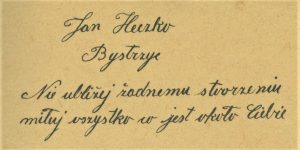 Jan Heczko
Bystrzyc
Nie ubliżej żadnemu stvorzeniu
miłuj wszystko co jest około Ciebie